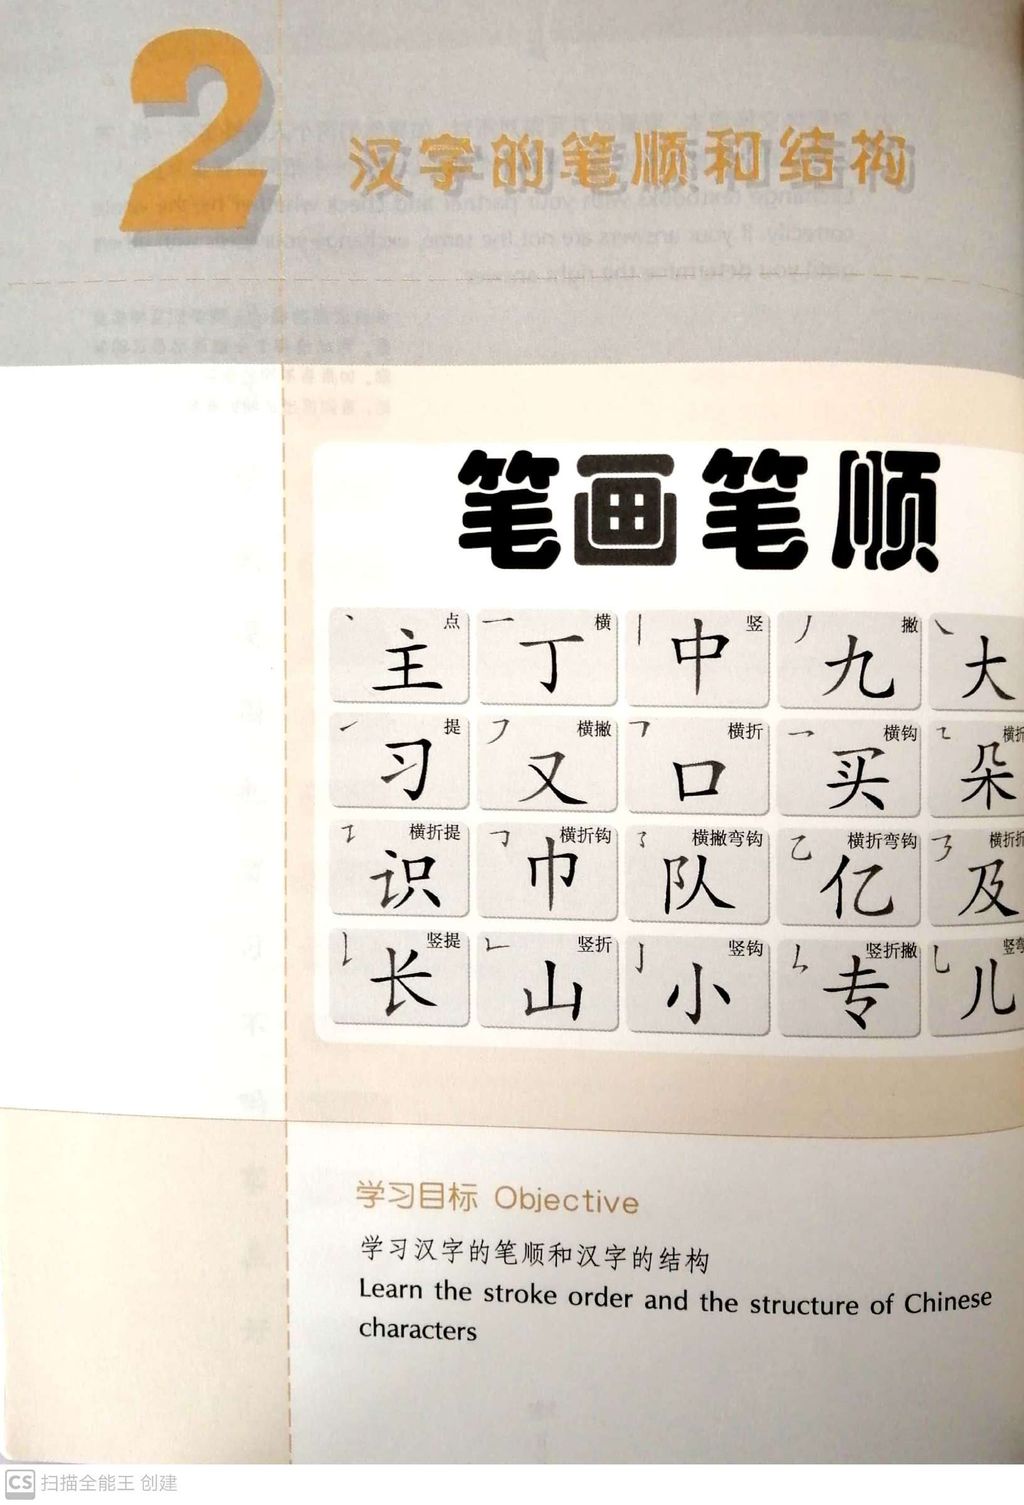 2
汉字的笔顺和结构
笔画笔顺
丶 点 主
一 横 丁
丨 竖 中
丿 撇 九
㇏ 大
㇀ 提 习
㇇ 横撇 又
𠃍 横折 口
乛 横钩 买
㇍ 横折 朵
㇊ 横折提 识
𠃌 横折钩 巾
㇌ 横撇弯钩 队
乙 横折弯钩 亿
㇋ 横折折 及
𠄌 竖提 长
𠃊 竖折 山
亅 竖钩 小
ㄣ 竖折撇 专
乚 竖弯 儿
学习目标 Objective
学习汉字的笔顺和汉字的结构
Learn the stroke order and the structure of Chinese
characters
CS 扫描全能王 创建